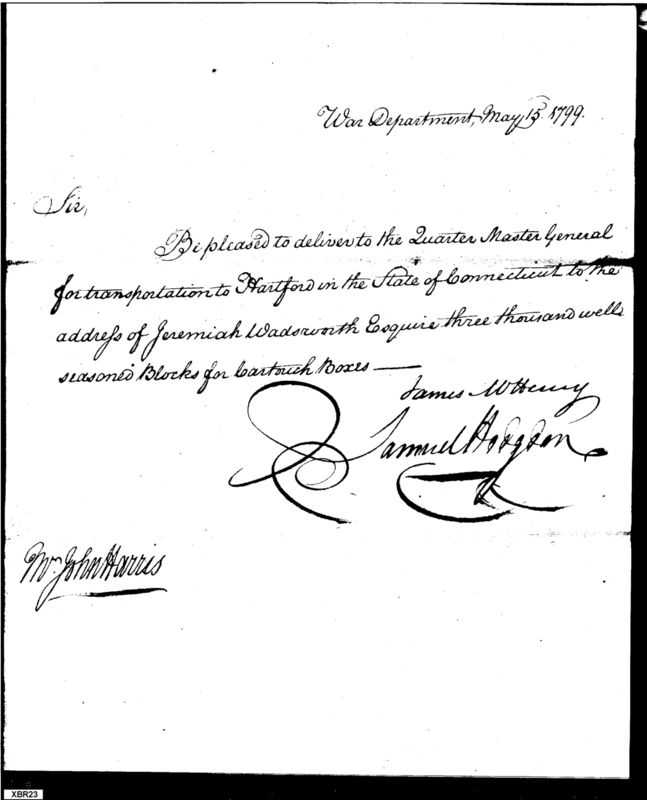 War Department, May 15. 1799.
Sir,
Be pleased to deliver to the Quarter Master General
for transportation to Hartford in the State of Connecticut to the
address of Jeremiah Wadsworth Esquire three thousand well
seasoned Blocks for Cartouch Boxes —
James McHenry
Samuel Hodgdon
Mr. John Harris
XBR23